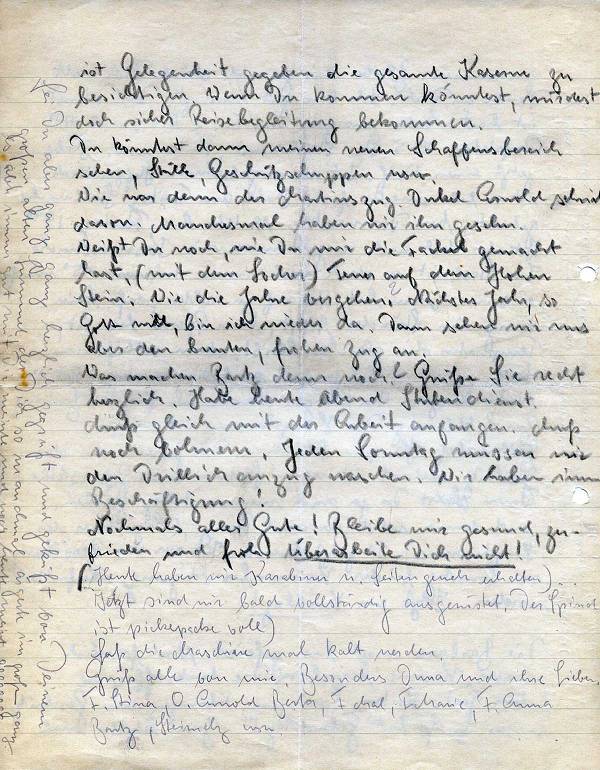 ist Gelegenheit gegeben die gesamte Kaserne zu
besichtigen. Wenn Du kommen könntest, würdest
doch sicher Reisebegleitung bekommen.
Du könntest dann meinen neuen Schaffensbereich
sehen, Ställe, Geschützschuppen usw.
Wie war denn der Martinszug. Onkel Arnold schrieb
davon. Manchesmal haben wir ihn gesehn.
Weißt Du noch, wie Du mir die Fackel gemacht
hast, (mit dem Locher) Feuer auf dem Hohen
Stein. Wie die Jahre vergehen. Nächstes Jahr, so
Gott will, bin ich wieder da. Dann sehen wir uns
aber den bunten, frohen Zug an.
Was machen denn noch? Grüße Sie recht
herzlich. Habe heute Abend Stubendienst.
Muß gleich mit der Arbeit anfangen. Muß
noch bohnern. Jeden Sonntag müssen wir
den Drillichanzug waschen. Wir haben immer
Beschäftigung!
Nochmals alles Gute! Bleibe mir gesund, zu-
frieden und froh. Überarbeite Dich nicht!
(Heute haben wir Karabiner u. Seitengewehr erhalten)
Jetzt sind wir bald vollständig ausgerüstet. Der Spind
ist pickepacke voll)
Laß die Maschine mal kalt werden.
Grüß alle von mir. Besonders Onna und ihre Lieben,
F. Stina, O. Arnold F. Anna
usw.
Sei Du aber ganz, ganz herzlich gegrüßt und geküßt von Deinem
großen alten